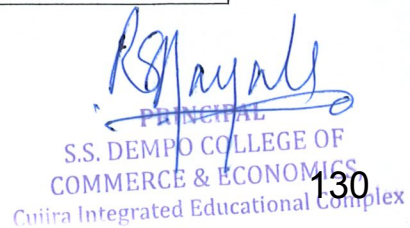 PRINCIPAL
S.S. DEMPO COLLEGE OF
COMMERCE & ECONOMICS,
Cujira Integrated Educational Complex
130